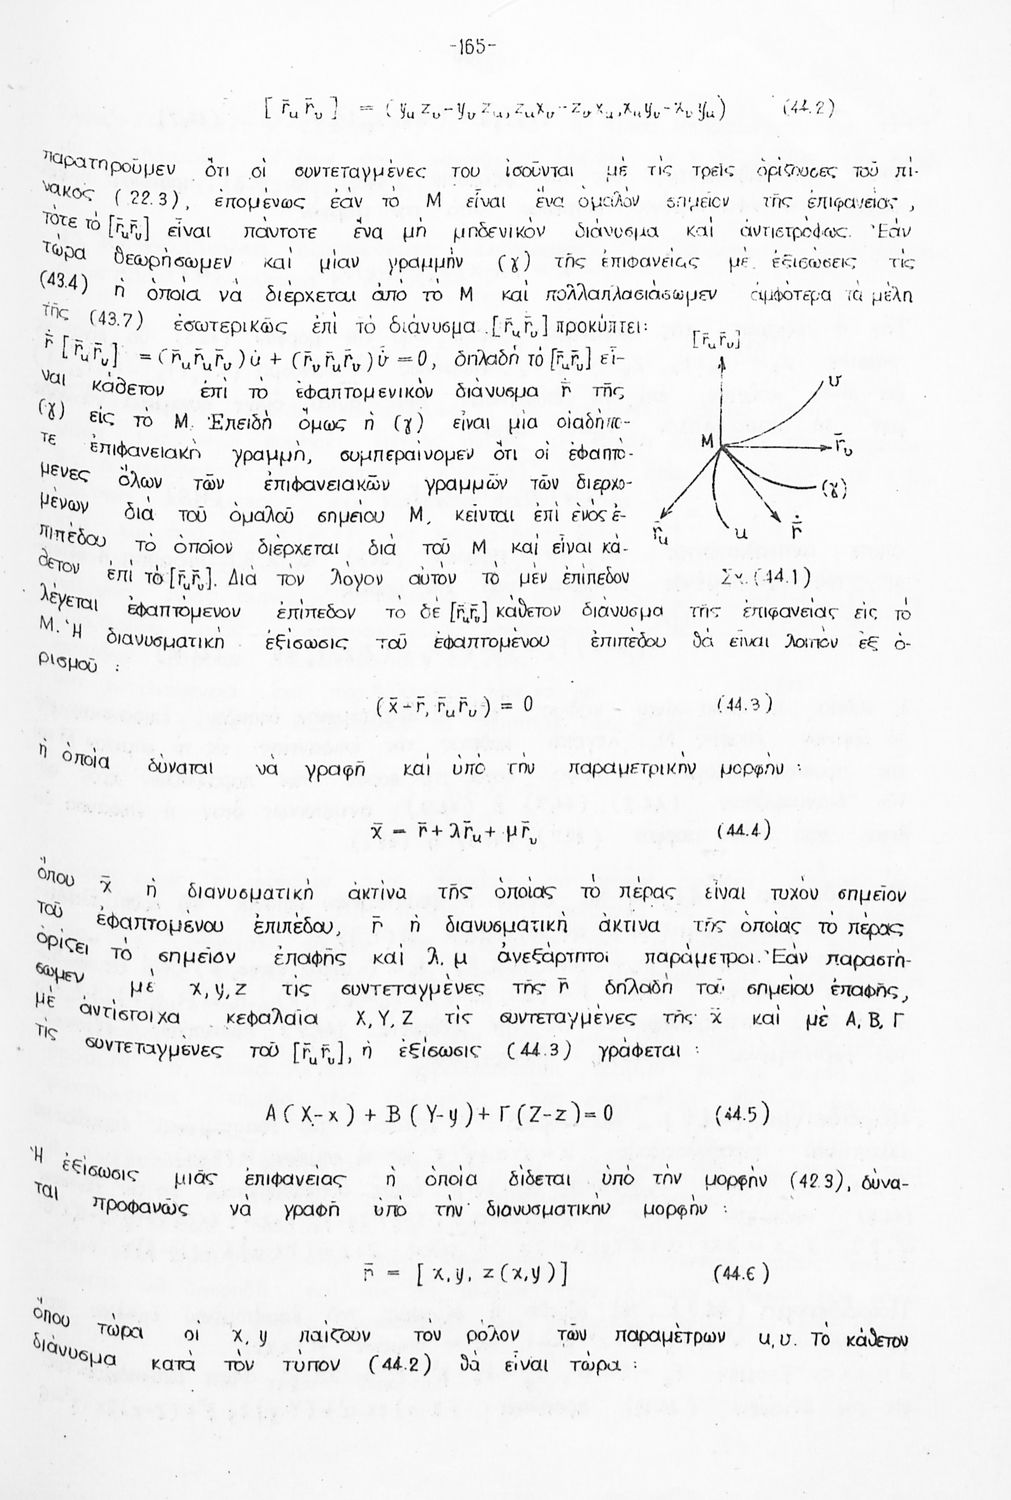 -165-
[ r̄u r̄υ ] = ( yu zυ - yυ zu, zu xυ - zυ xu, xu yυ - xυ yu ) (44.2)
παρατηροῦμεν ὅτι οἱ συντεταγμένες του ἰσοῦνται μὲ τὶς τρεῖς ὁρίζουσες τοῦ πί-
νακος (22.3), ἑπομένως ἐὰν τὸ Μ εἶναι ἕνα ὁμαλὸν σημεῖον τῆς ἐπιφανείας,
τότε τὸ [r̄u r̄υ] εἶναι πάντοτε ἕνα μὴ μηδενικὸν διάνυσμα καὶ ἀντιστρόφως. Ἐὰν
τώρα θεωρήσωμεν καὶ μίαν γραμμὴν (γ) τῆς ἐπιφανείας μὲ ἐξισώσεις τὶς
(43.4) ἡ ὁποία νὰ διέρχεται ἀπὸ τὸ Μ καὶ πολλαπλασιάσωμεν ἀμφότερα τὰ μέλη
τῆς (43.7) ἐσωτερικῶς ἐπὶ τὸ διάνυσμα [r̄u r̄υ] προκύπτει:
r̄̇ [r̄u r̄υ] = (r̄u r̄u r̄υ) u̇ + (r̄υ r̄u r̄υ) υ̇ = 0, δηλαδὴ τὸ [r̄u r̄υ] εἶ-
ναι κάθετον ἐπὶ τὸ ἐφαπτομενικὸν διάνυσμα r̄̇ τῆς
(γ) εἰς τὸ Μ. Ἐπειδὴ ὅμως ἡ (γ) εἶναι μία οἱαδήπο-
τε ἐπιφανειακὴ γραμμή, συμπεραίνομεν ὅτι οἱ ἐφαπτό-
μενες ὅλων τῶν ἐπιφανειακῶν γραμμῶν τῶν διερχο-
μένων διὰ τοῦ ὁμαλοῦ σημείου Μ, κεῖνται ἐπὶ ἑνὸς ἐ-
πιπέδου τὸ ὁποῖον διέρχεται διὰ τοῦ Μ καὶ εἶναι κά-
θετον ἐπὶ τὸ [r̄u r̄υ]. Διὰ τὸν λόγον αὐτὸν τὸ μὲν ἐπίπεδον
[r̄u r̄υ]
υ
Μ
r̄υ
(γ)
r̄u
u
r̄̇
Σχ. (44.1)
λέγεται ἐφαπτόμενον ἐπίπεδον τὸ δὲ [r̄u r̄υ] κάθετον διάνυσμα τῆς ἐπιφανείας εἰς τὸ
Μ. Ἡ διανυσματικὴ ἐξίσωσις τοῦ ἐφαπτομένου ἐπιπέδου θὰ εἶναι λοιπὸν ἐξ ὁ-
ρισμοῦ :
(x̄ - r̄, r̄u r̄υ) = 0 (44.3)
ἡ ὁποία δύναται νὰ γραφῇ καὶ ὑπὸ τὴν παραμετρικὴν μορφὴν :
x̄ = r̄ + λ r̄u + μ r̄υ (44.4)
ὅπου x̄ ἡ διανυσματικὴ ἀκτῖνα τῆς ὁποίας τὸ πέρας εἶναι τυχὸν σημεῖον
τοῦ ἐφαπτομένου ἐπιπέδου, r̄ ἡ διανυσματικὴ ἀκτῖνα τῆς ὁποίας τὸ πέρας
ὁρίζει τὸ σημεῖον ἐπαφῆς καὶ λ, μ ἀνεξάρτητοι παράμετροι. Ἐὰν παραστή-
σωμεν μὲ x, y, z τὶς συντεταγμένες τῆς r̄ δηλαδὴ τοῦ σημείου ἐπαφῆς,
μὲ ἀντίστοιχα κεφαλαῖα X, Y, Z τὶς συντεταγμένες τῆς x̄ καὶ μὲ Α, Β, Γ
τὶς συντεταγμένες τοῦ [r̄u r̄υ], ἡ ἐξίσωσις (44.3) γράφεται :
Α ( X - x ) + Β ( Y - y ) + Γ ( Z - z ) = 0 (44.5)
Ἡ ἐξίσωσις μιᾶς ἐπιφανείας ἡ ὁποία δίδεται ὑπὸ τὴν μορφὴν (42.3), δύνα-
ται προφανῶς νὰ γραφῇ ὑπὸ τὴν διανυσματικὴν μορφὴν :
r̄ = [ x, y, z (x, y) ] (44.6)
ὅπου τώρα οἱ x, y παίζουν τὸν ρόλον τῶν παραμέτρων u, υ. Τὸ κάθετον
διάνυσμα κατὰ τὸν τύπον (44.2) θὰ εἶναι τώρα :